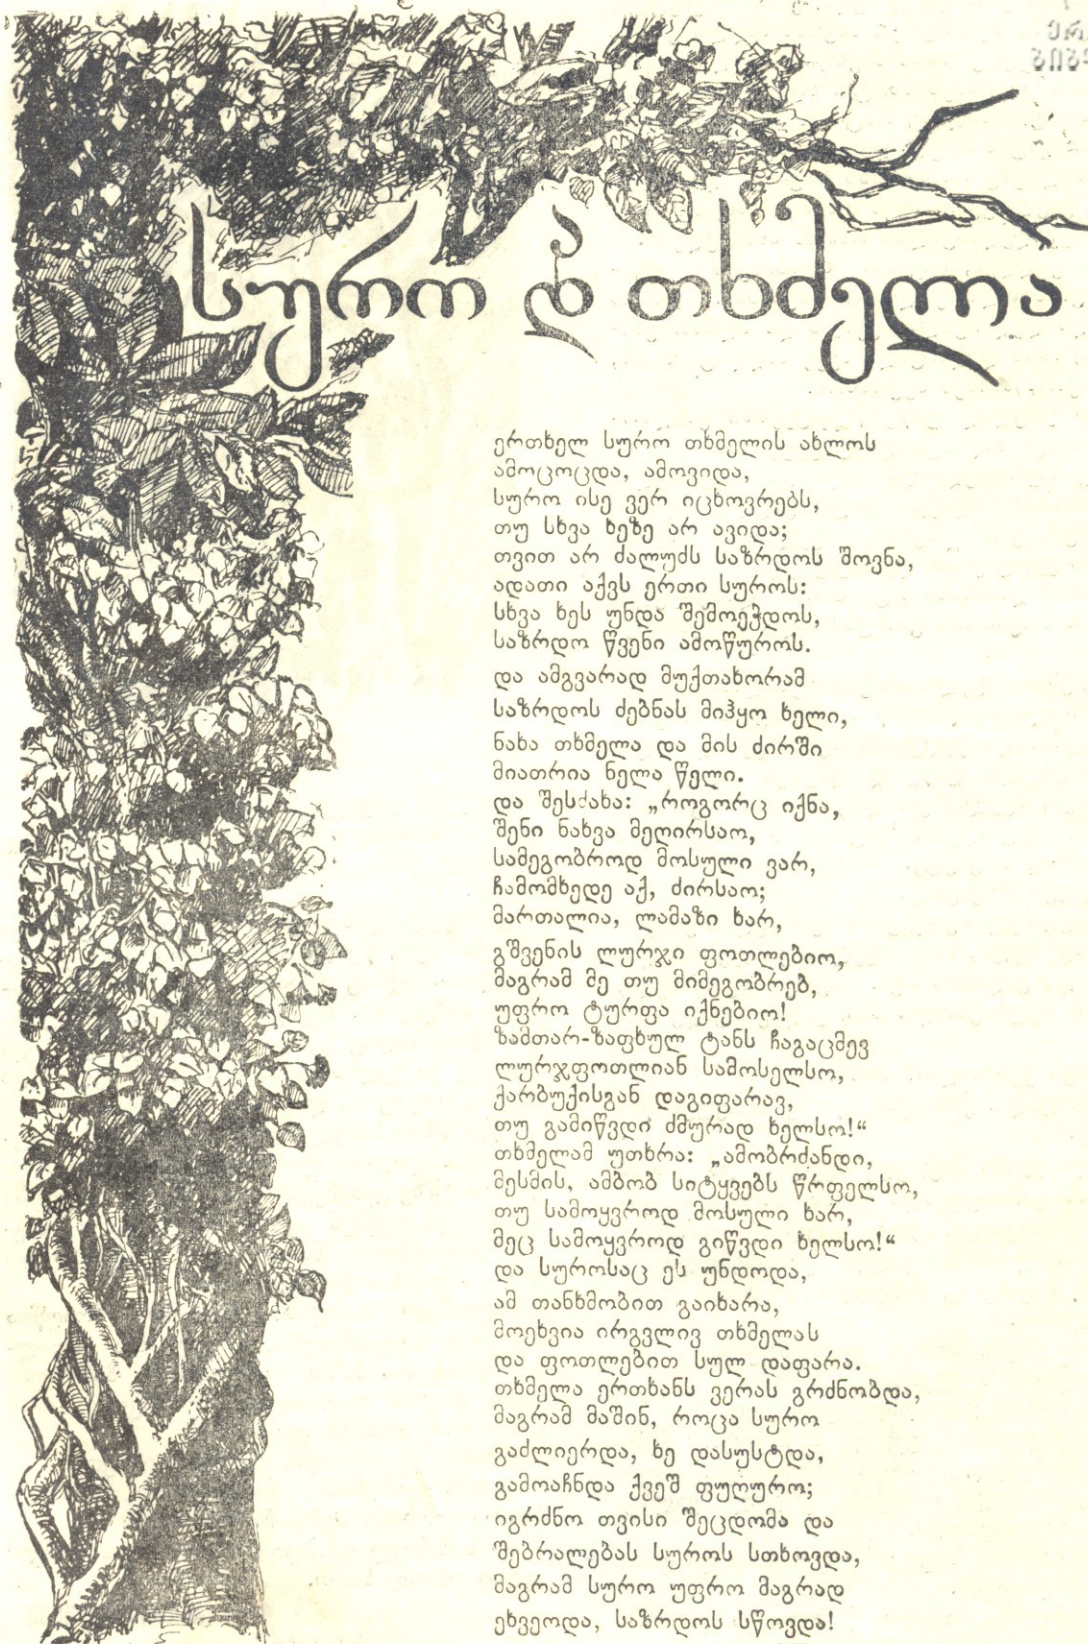 სურო და თხმელა
ერთხელ სურო თხმელის ახლოს
ამოცოცდა, ამოვიდა,
სურო ისე ვერ იცხოვრებს,
თუ სხვა ხეზე არ ავიდა;
თვით არ ძალუძს საზრდოს შოვნა,
ადათი აქვს ერთი სუროს:
სხვა ხეს უნდა შემოეჭდოს,
საზრდო წვენი ამოწუროს.
და ამგვარად მუქთახორამ
საზრდოს ძებნას მიჰყო ხელი,
ნახა თხმელა და მის ძირში
მიათრია ნელა წელი.
და შესძახა: „როგორც იქნა,
შენი ნახვა მეღირსაო,
სამეგობროდ მოსული ვარ,
ჩამომხედე აქ, ძირსაო;
მართალია, ლამაზი ხარ,
გშვენის ლურჯი ფოთლებიო,
მაგრამ მე თუ მიმეგობრებ,
უფრო ტურფა იქნებიო!
ზამთარ-ზაფხულ ტანს ჩაგაცმევ
ლურჯფოთლიან სამოსელსო,
ქარბუქისგან დაგიფარავ,
თუ გამიწვდი ძმურად ხელსო!“
თხმელამ უთხრა: „ამობრძანდი,
მესმის, ამბობ სიტყვებს წრფელსო,
თუ სამოყვროდ მოსული ხარ,
მეც სამოყვროდ გიწვდი ხელსო!“
და სუროსაც ეს უნდოდა,
ამ თანხმობით გაიხარა,
მოეხვია ირგვლივ თხმელას
და ფოთლებით სულ დაფარა.
თხმელა ერთხანს ვერას გრძნობდა,
მაგრამ მაშინ, როცა სურო
გაძლიერდა, ხე დასუსტდა,
გამოაჩნდა ქვეშ ფუღურო;
იგრძნო თვისი შეცდომა და
შებრალებას სუროს სთხოვდა,
მაგრამ სურო უფრო მაგრად
ეხვეოდა, საზრდოს სწოვდა!